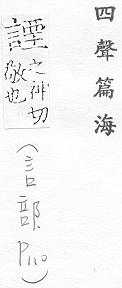 四聲篇海
諲
之伸切
敬也
(言部 P110)